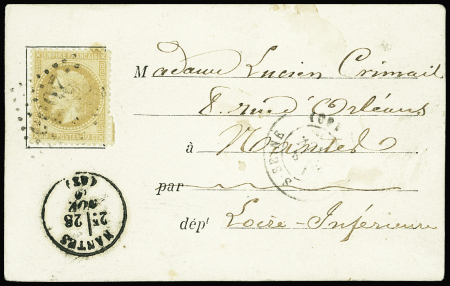 Madame Lucien Crimail
8. rue d'Orléans
à Nantes
par
dépt Loire-Inférieure
NANTES
2E 28
NOV
(42)